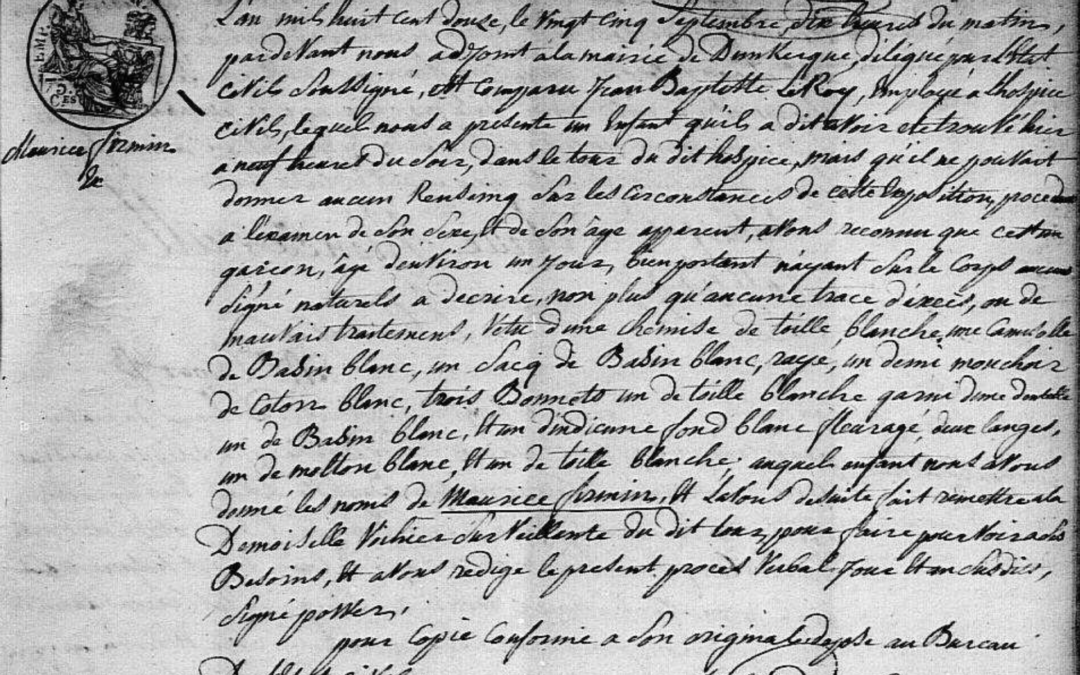 L'an mil huit cent douze, le vingt cinq Septembre dix heures du matin,
pardevant nous adjoint a la mairie de Dunkerque, délégué pour l'Etat
Civil, Soussigné, est Comparu Jean Baptiste LeRoy, employé a l'hospice
Civil, lequel nous a presenté un Enfant qu'il a dit avoir été trouvé hier
Maurice firmin
a neuf heures du Soir, dans le tour du dit hospice, mais qu'il ne pouvait
donner aucun Renseing Sur les circonstances de cette Exposition, procedant
a l'examen de Son Sexe, et de Son âge apparent, avons reconnu que c'est un
garçon, âgé d'environ un Jour, bien portant n'ayant Sur le Corps aucun
Signe naturels a decrire, non plus qu'aucune trace d'éxcès, ou de
mauvais traitement, Vetu d'une chemise de toille blanche, une Camisolle
de Basin blanc, un Sacq de Basin blanc, rayé, un demi mouchoir
de Coton blanc, trois Bonnets un de toille blanche garni d'une dentelle
un de Basin blanc, et un d'indienne fond blanc fleuragé, deux langes,
un de molton blanc, et un de toille blanche; auquel enfant nous avons
donné les noms de Maurice firmin, et L'avons de suite fait remettre a la
Demoiselle Surveillente du dit tour, pour faire pourvoir a ses
Besoins, et avons redigé le present procès Verbal Jour et an Susdits,
Signé
pour Copie Conforme a Son original deposé au Bureau